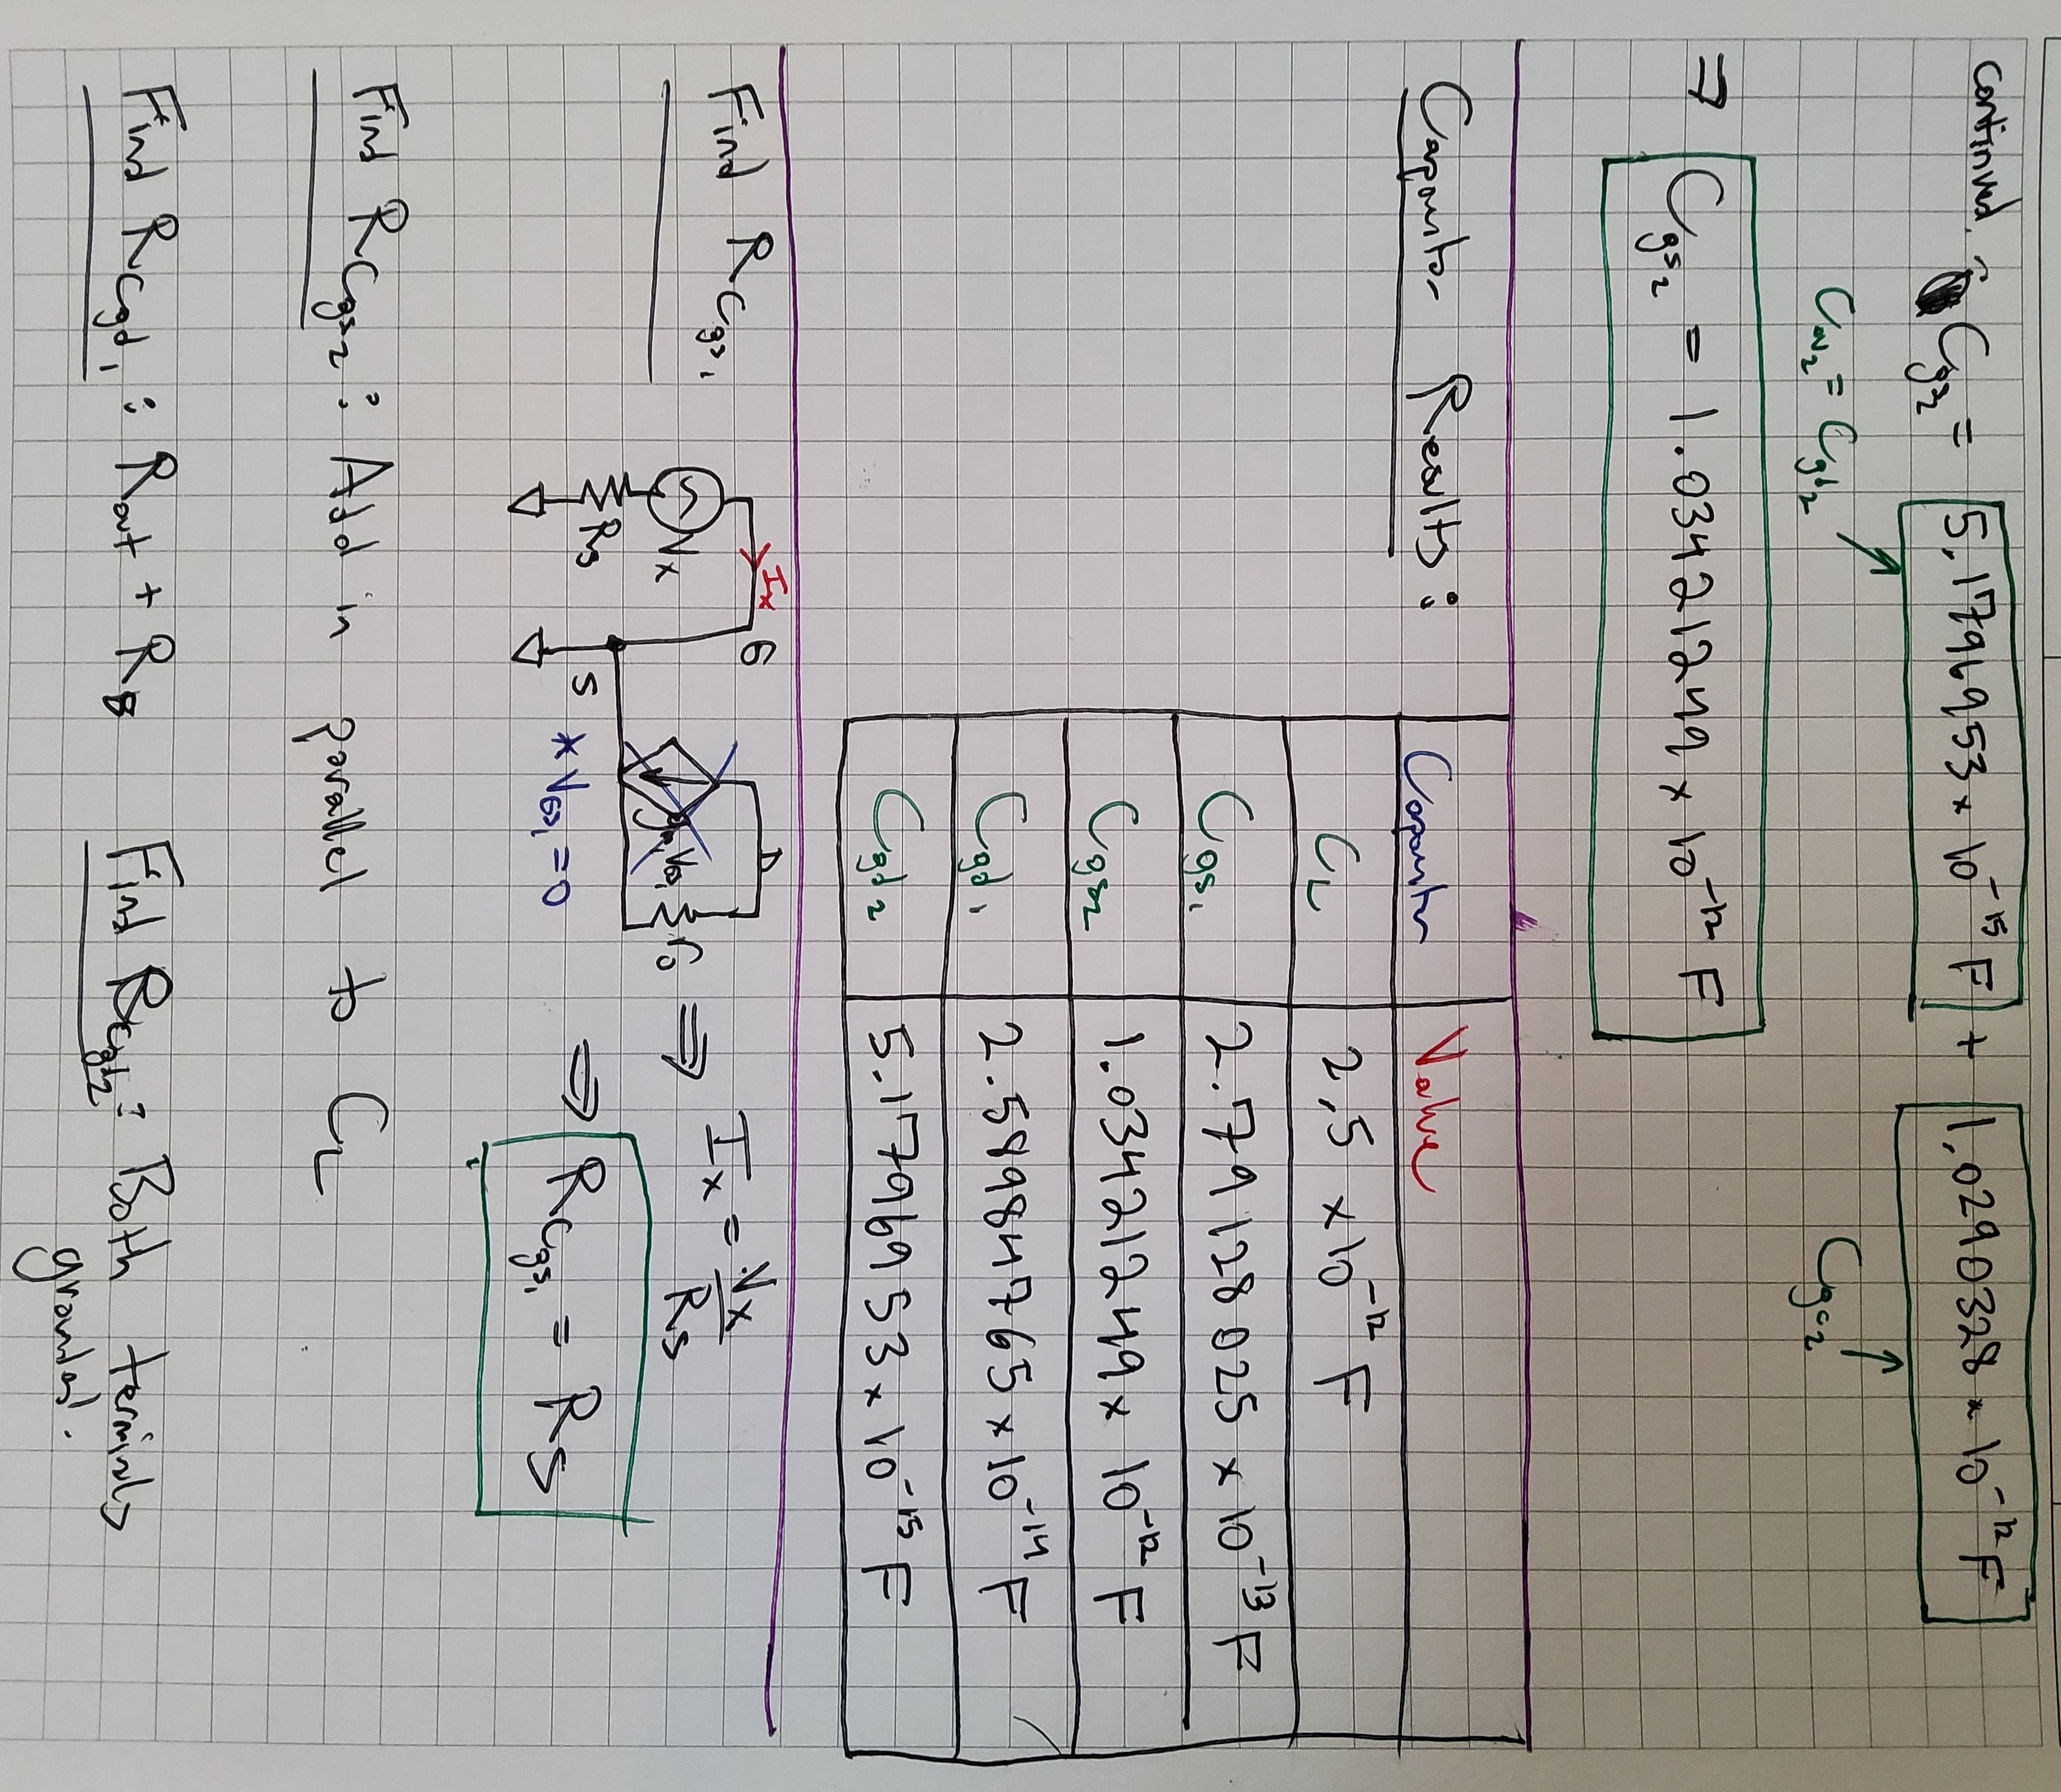 continued. C_gs2 = 5.1796953 x 10^-15 F + 1.0290328 x 10^-12 F
C_ov2 = C_gd2 C_gc2
⇒ C_gs2 = 1.03421249 x 10^-12 F
Capacitor Results:
Capacitor Value
C_L 2.5 x10^-12 F
C_gs1 2.79128025 x 10^-13 F
C_gs2 1.03421249 x 10^-12 F
C_gd1 2.58984765 x 10^-14 F
C_gd2 5.1796953 x 10^-15 F
Find R_Cgs1
I_x G D
V_x g_m1 V_GS1 r_o ⇒ I_x = V_x / R_s
R_s S * V_GS1 = 0 ⇒ R_Cgs1 = R_S
Find R_Cgs2 : Add in parallel to C_L
Find R_Cgd1 : R_out + R_B Find R_Cgd2 : Both terminals
grounded.